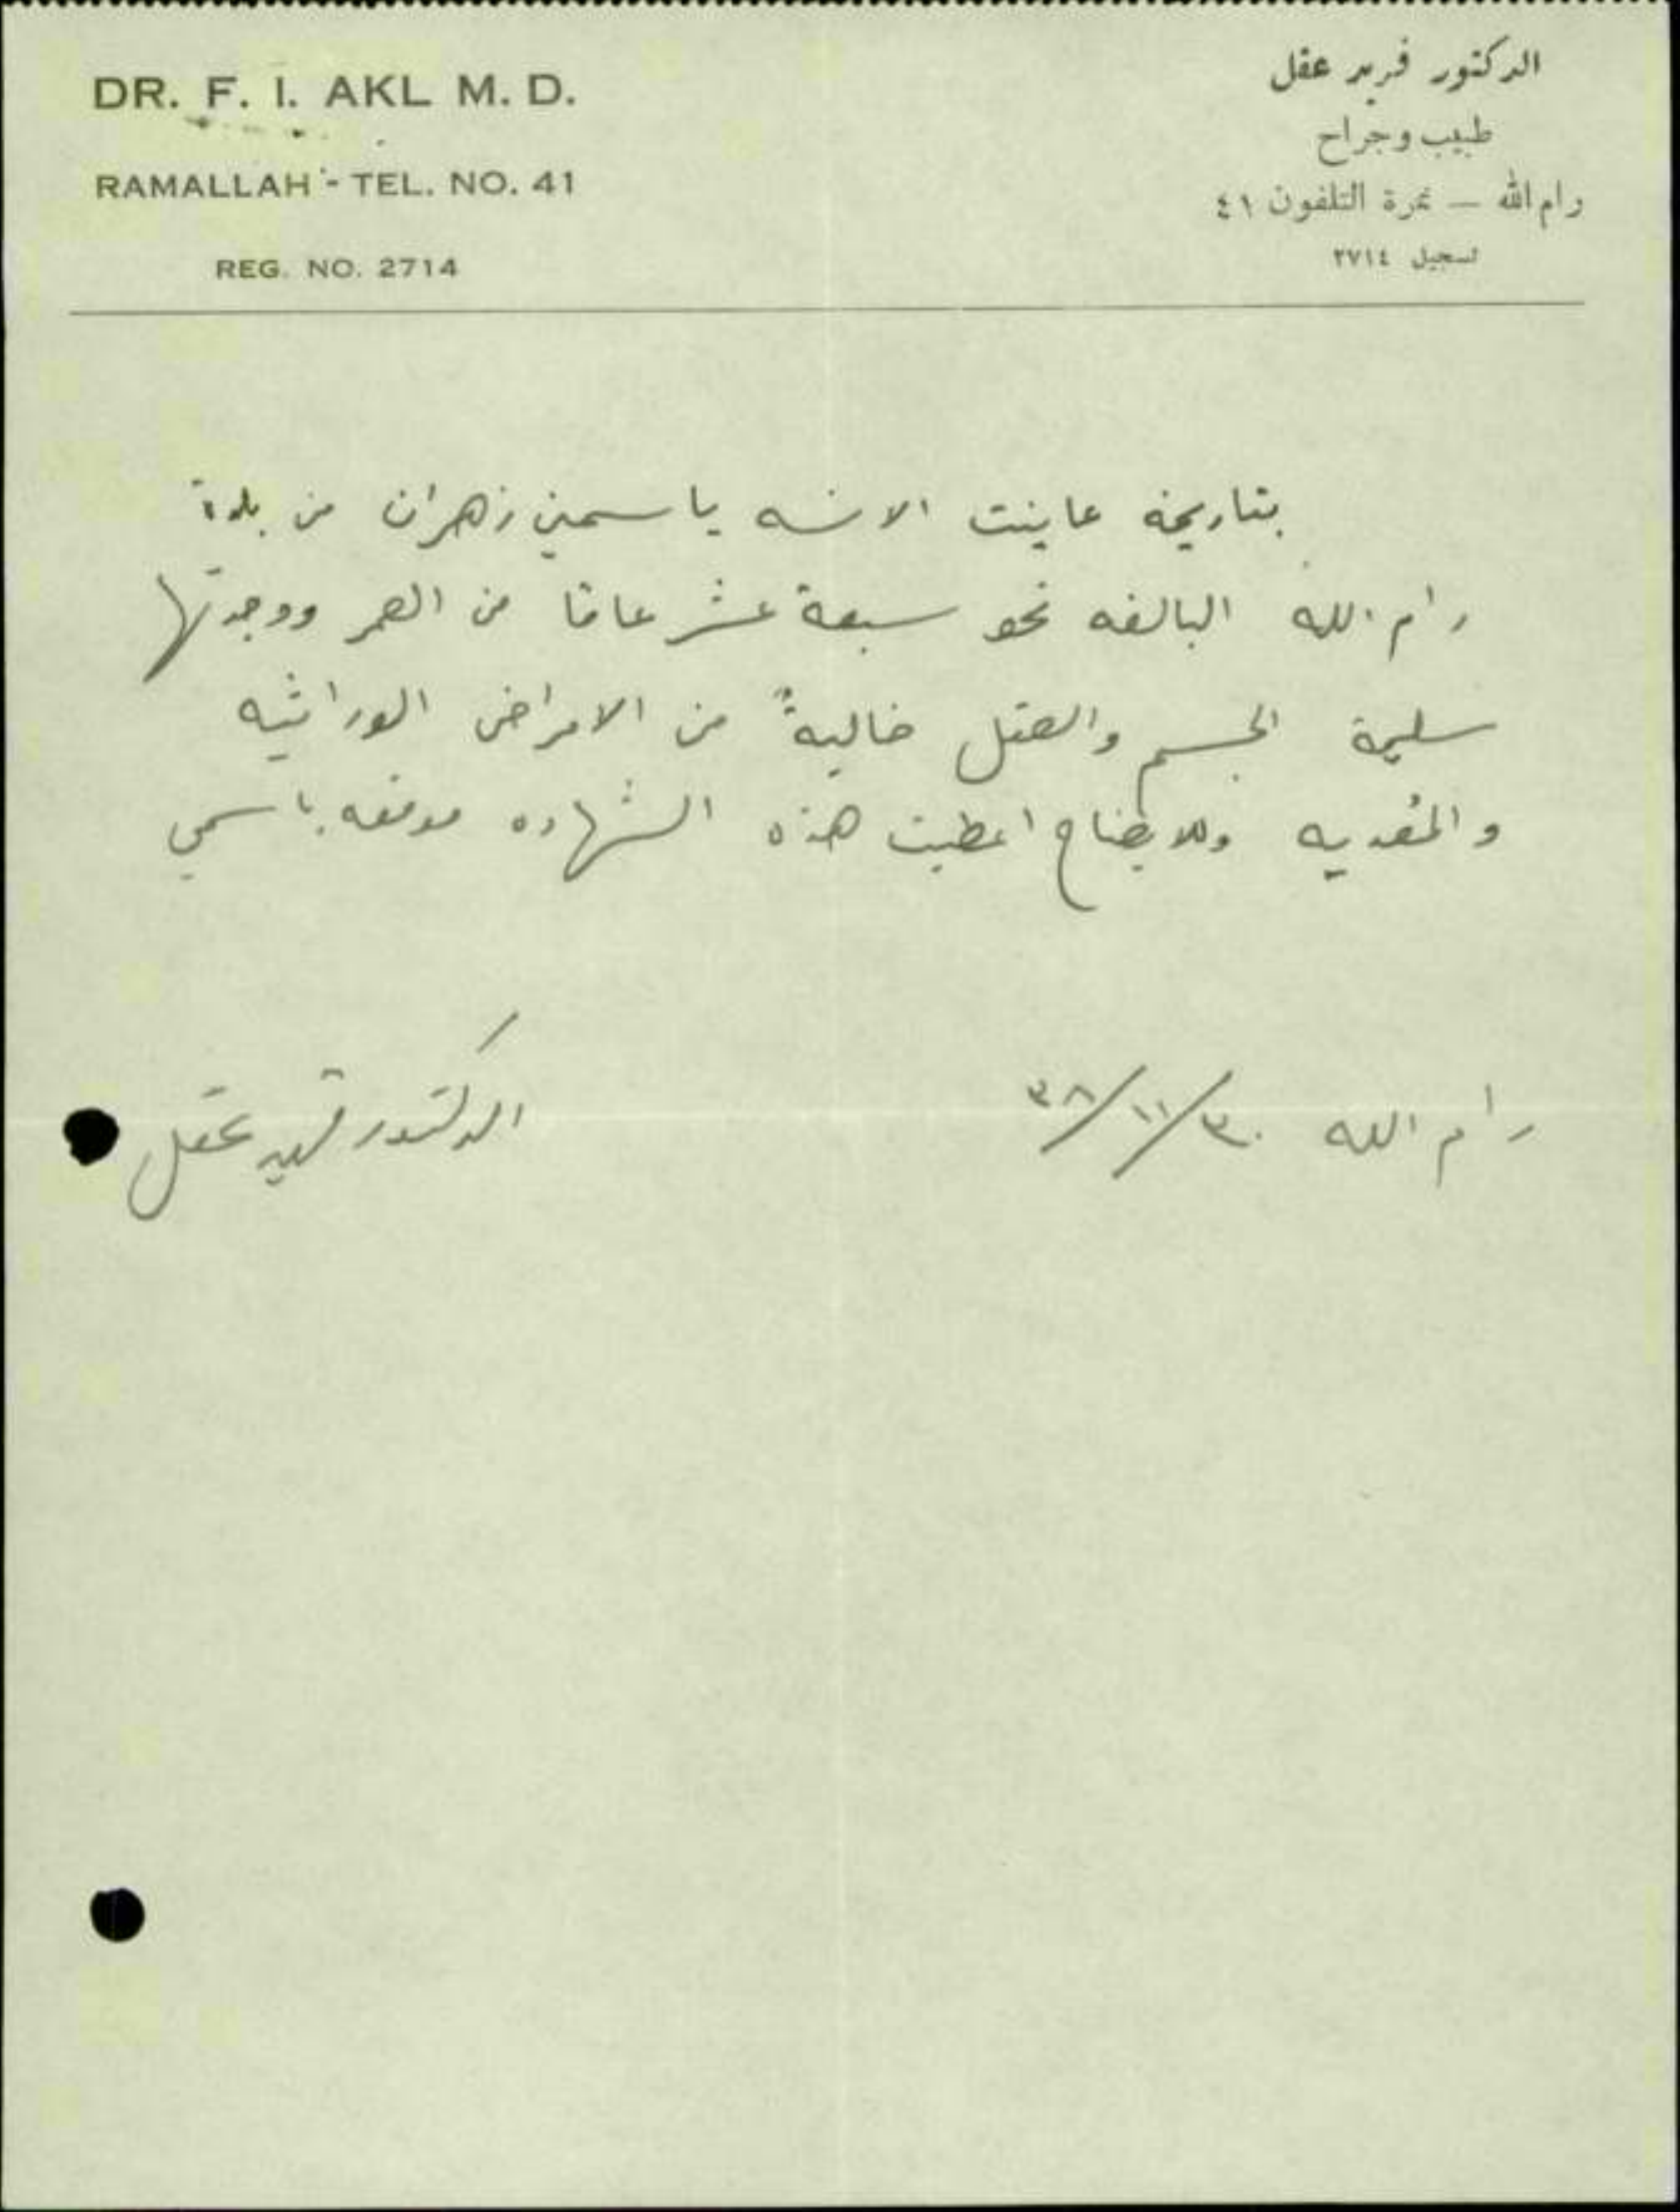 DR. F. I. AKL M. D.
RAMALLAH - TEL. NO. 41
REG. NO. 2714
الدكتور فريد عقل
طبيب وجراح
رام الله — نمرة التلفون ٤١
تسجيل ٢٧١٤
بتاريخه عاينت الانسه ياسمين زهران من بلدة
رام الله البالغه نحو سبعة عشر عامًا من العمر ووجدتها
سليمة الجسم والعقل خاليةً من الامراض الوراثيه
والمُعديه وللايضاح اعطيت هذه الشهاده موقعه باسمي
رام الله ٣٠/١١/٣٨
الدكتور فريد عقل